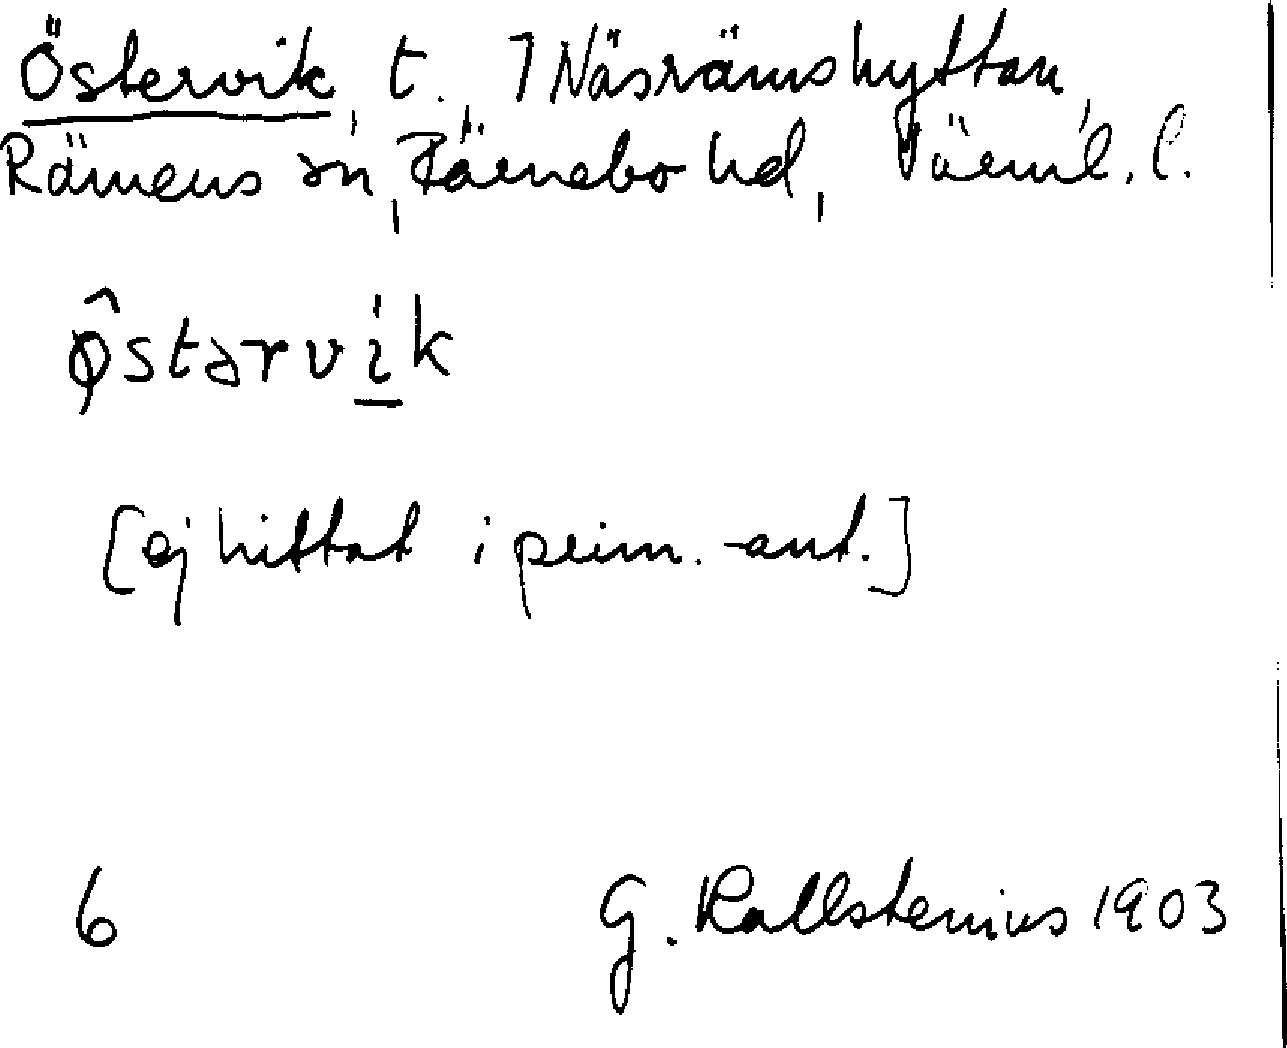 Östervik, t. 7 Näsrämshyttan,
Rämens sn, Färnebo hd, Värml. l.
φ̂stərvik
[ej hittat i prim.-ant.]
6 G. Kallstenius 1903